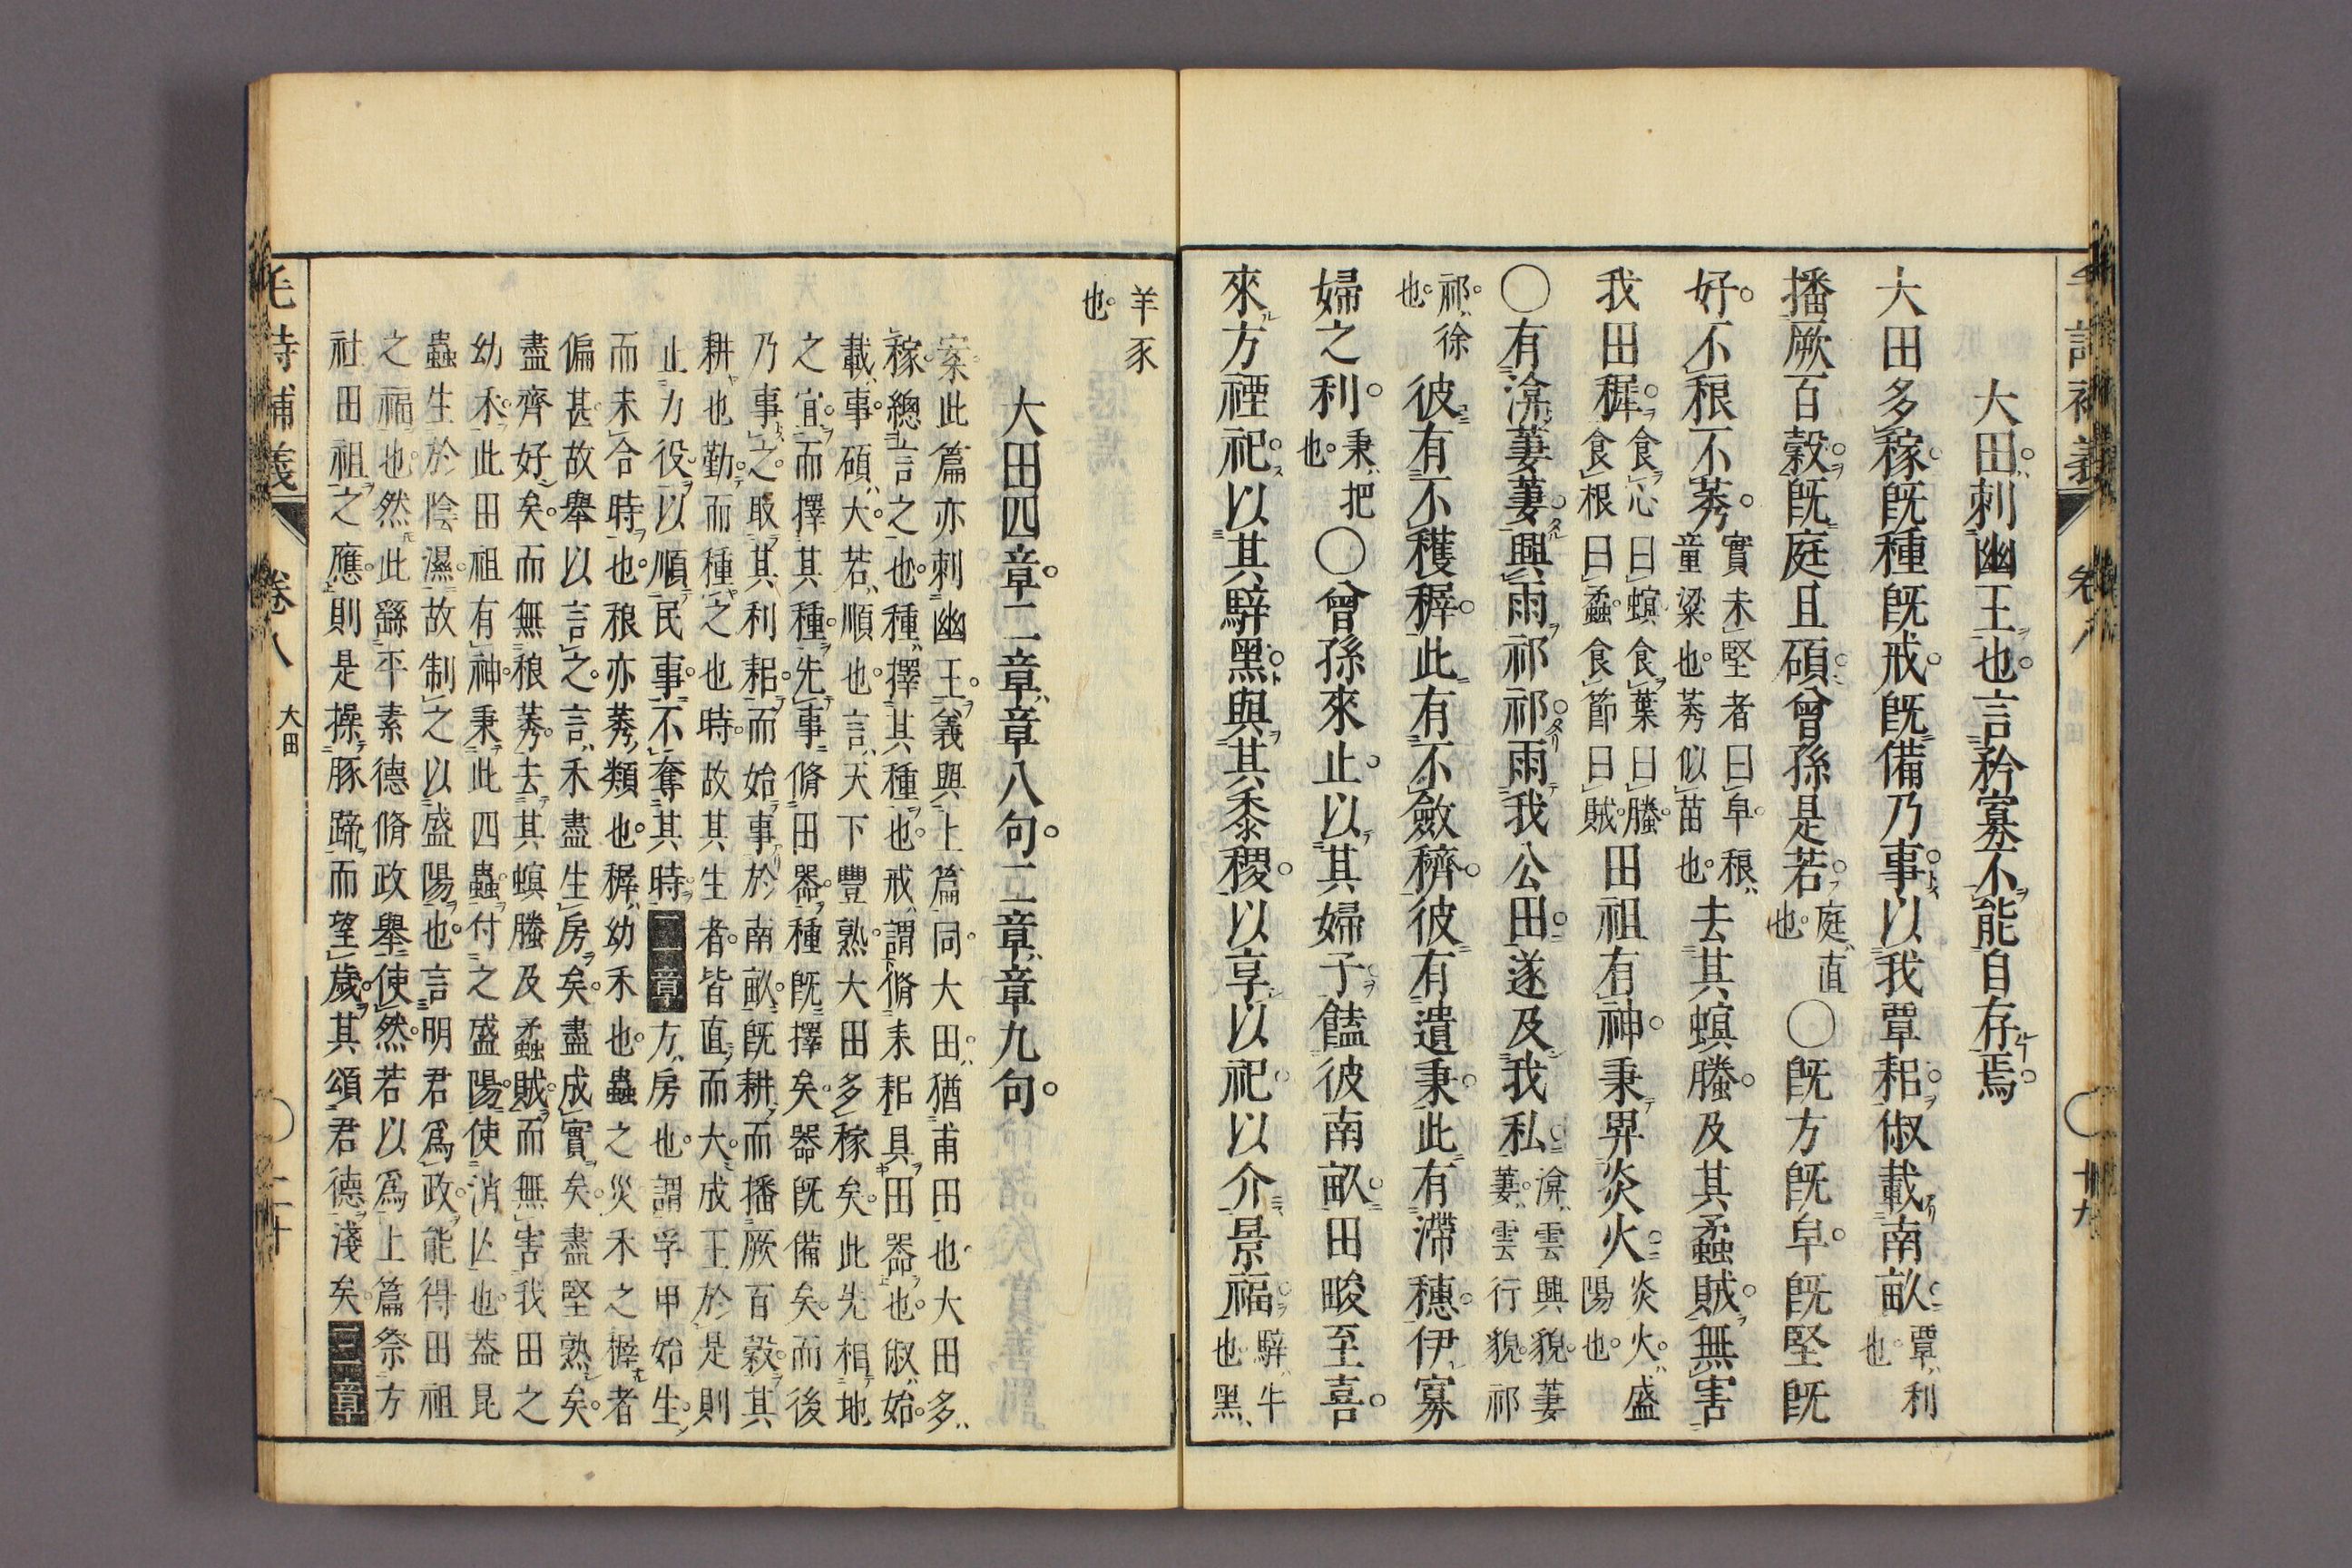 大田。刺幽王也。言矜寡不能自存焉。
大田多稼。既種既戒。既備乃事。以我覃耜。俶載南畝。覃利也。
播厥百穀。既庭且碩。曾孫是若。庭直也。〇既方既皁。既堅既
好。不稂不莠。實未堅者曰皁。稂童粱也。莠似苗也。去其螟螣。及其蟊賊。無害
我田穉。食心曰螟食葉曰螣。食根曰蟊。食節曰賊。田祖有神。秉畀炎火。炎火。盛陽也。
〇有渰萋萋。興雨祁祁。雨我公田。遂及我私。渰雲興貌。萋萋。雲行貌。祁
祁。徐也。彼有不穫穉。此有不斂穧。彼有遺秉。此有滯穗。伊寡
婦之利。秉把也。〇曾孫來止。以其婦子。饁彼南畝。田畯至喜。
來方禋祀。以其騂黑。與其黍稷。以享以祀。以介景福。騂牛也。黑
羊豕也。
大田四章。二章。章八句。二章。章九句。
案此篇亦刺幽王。義與上篇同。大田。猶甫田也。大田多
稼。總言之也。種擇其種也。戒謂脩耒耜具田器也。俶始。
載事。碩大。若順也。言天下豐熟。大田多稼矣。此先相地
之宜。而擇其種。先事脩田器。種既擇矣。器既備矣。而後
乃事之。取其利耜。而始事於南畝。既耕而播厥百穀。其
耕也勤。而種之也時。故其生者。皆直而大。成王於是則
止力役。以順民事。不奪其時。二章方房也。謂孚甲始生。
而未合時也。稂亦莠類也。穉幼禾也。蟲之災禾之穉者
偏甚。故舉以言之。言禾盡生房矣。盡成實矣。盡堅熟矣。
盡齊好矣。而無稂莠。去其螟螣及蟊賊。而無害我田之
幼禾。此田祖有神。秉此四蟲。付之盛陽。使消亾也。葢昆
蟲生於陰濕。故制之以盛陽也。言明君爲政。能得田祖
之福也。然此繇平素德脩政舉使然。若以爲上篇祭方
社田祖之應。則是操豚蹄而望歲。其頌君德淺矣。三章
毛詩補義 卷八 大田 〇二十
卷八 〇十九